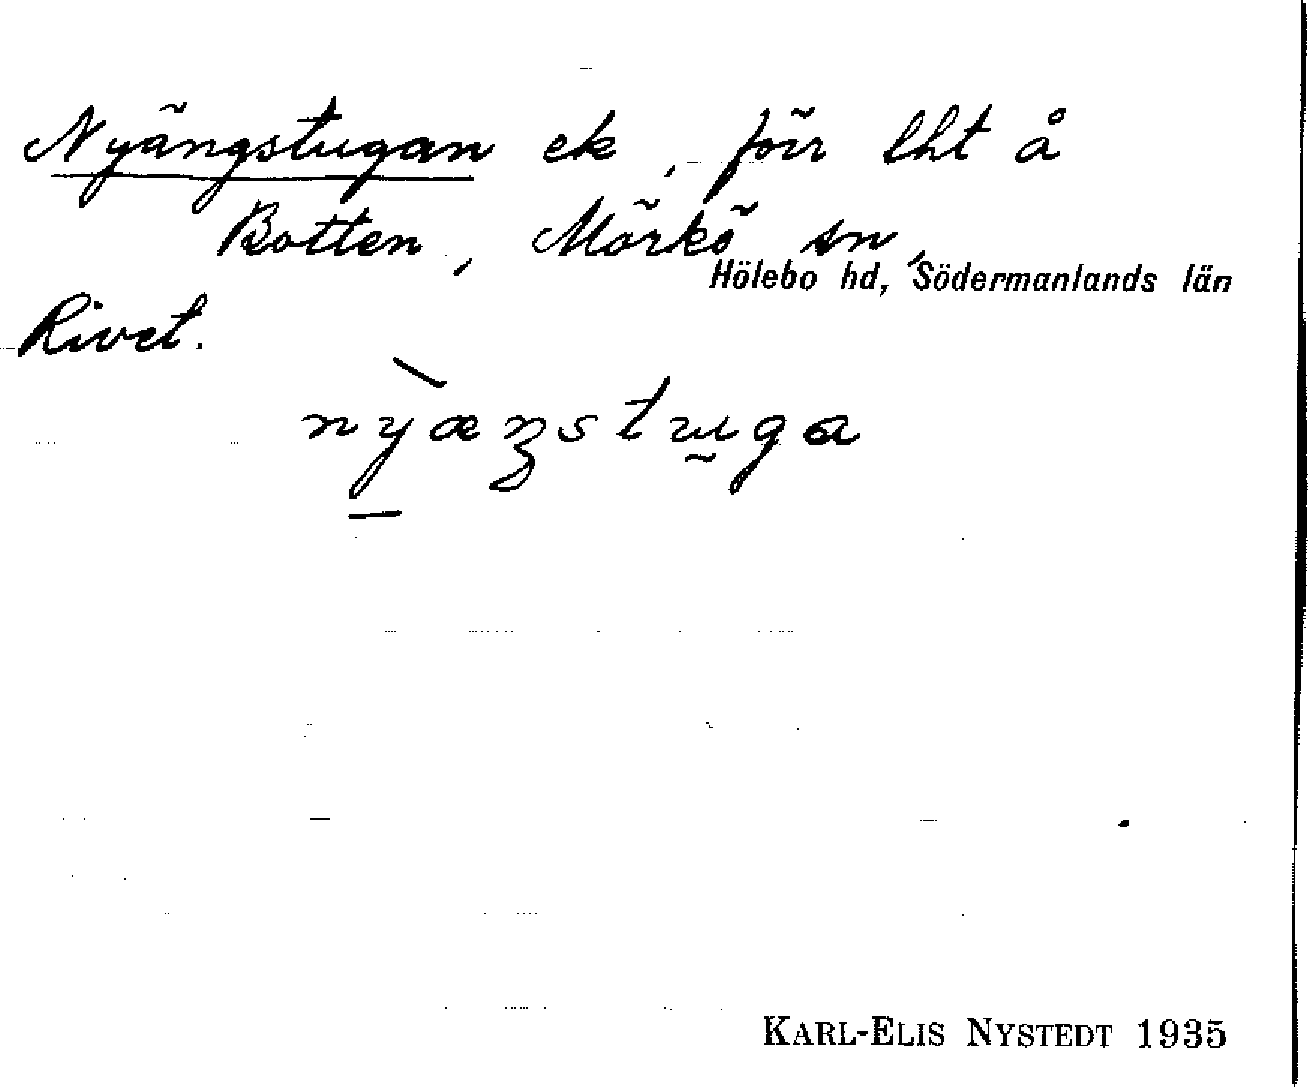 Nyängstugan ek, förr lht å
Botten, Mörkö sn,
Hölebo hd, Södermanlands län
Rivet.
nỳ̱æŋstṵga
KARL-ELIS NYSTEDT 1935